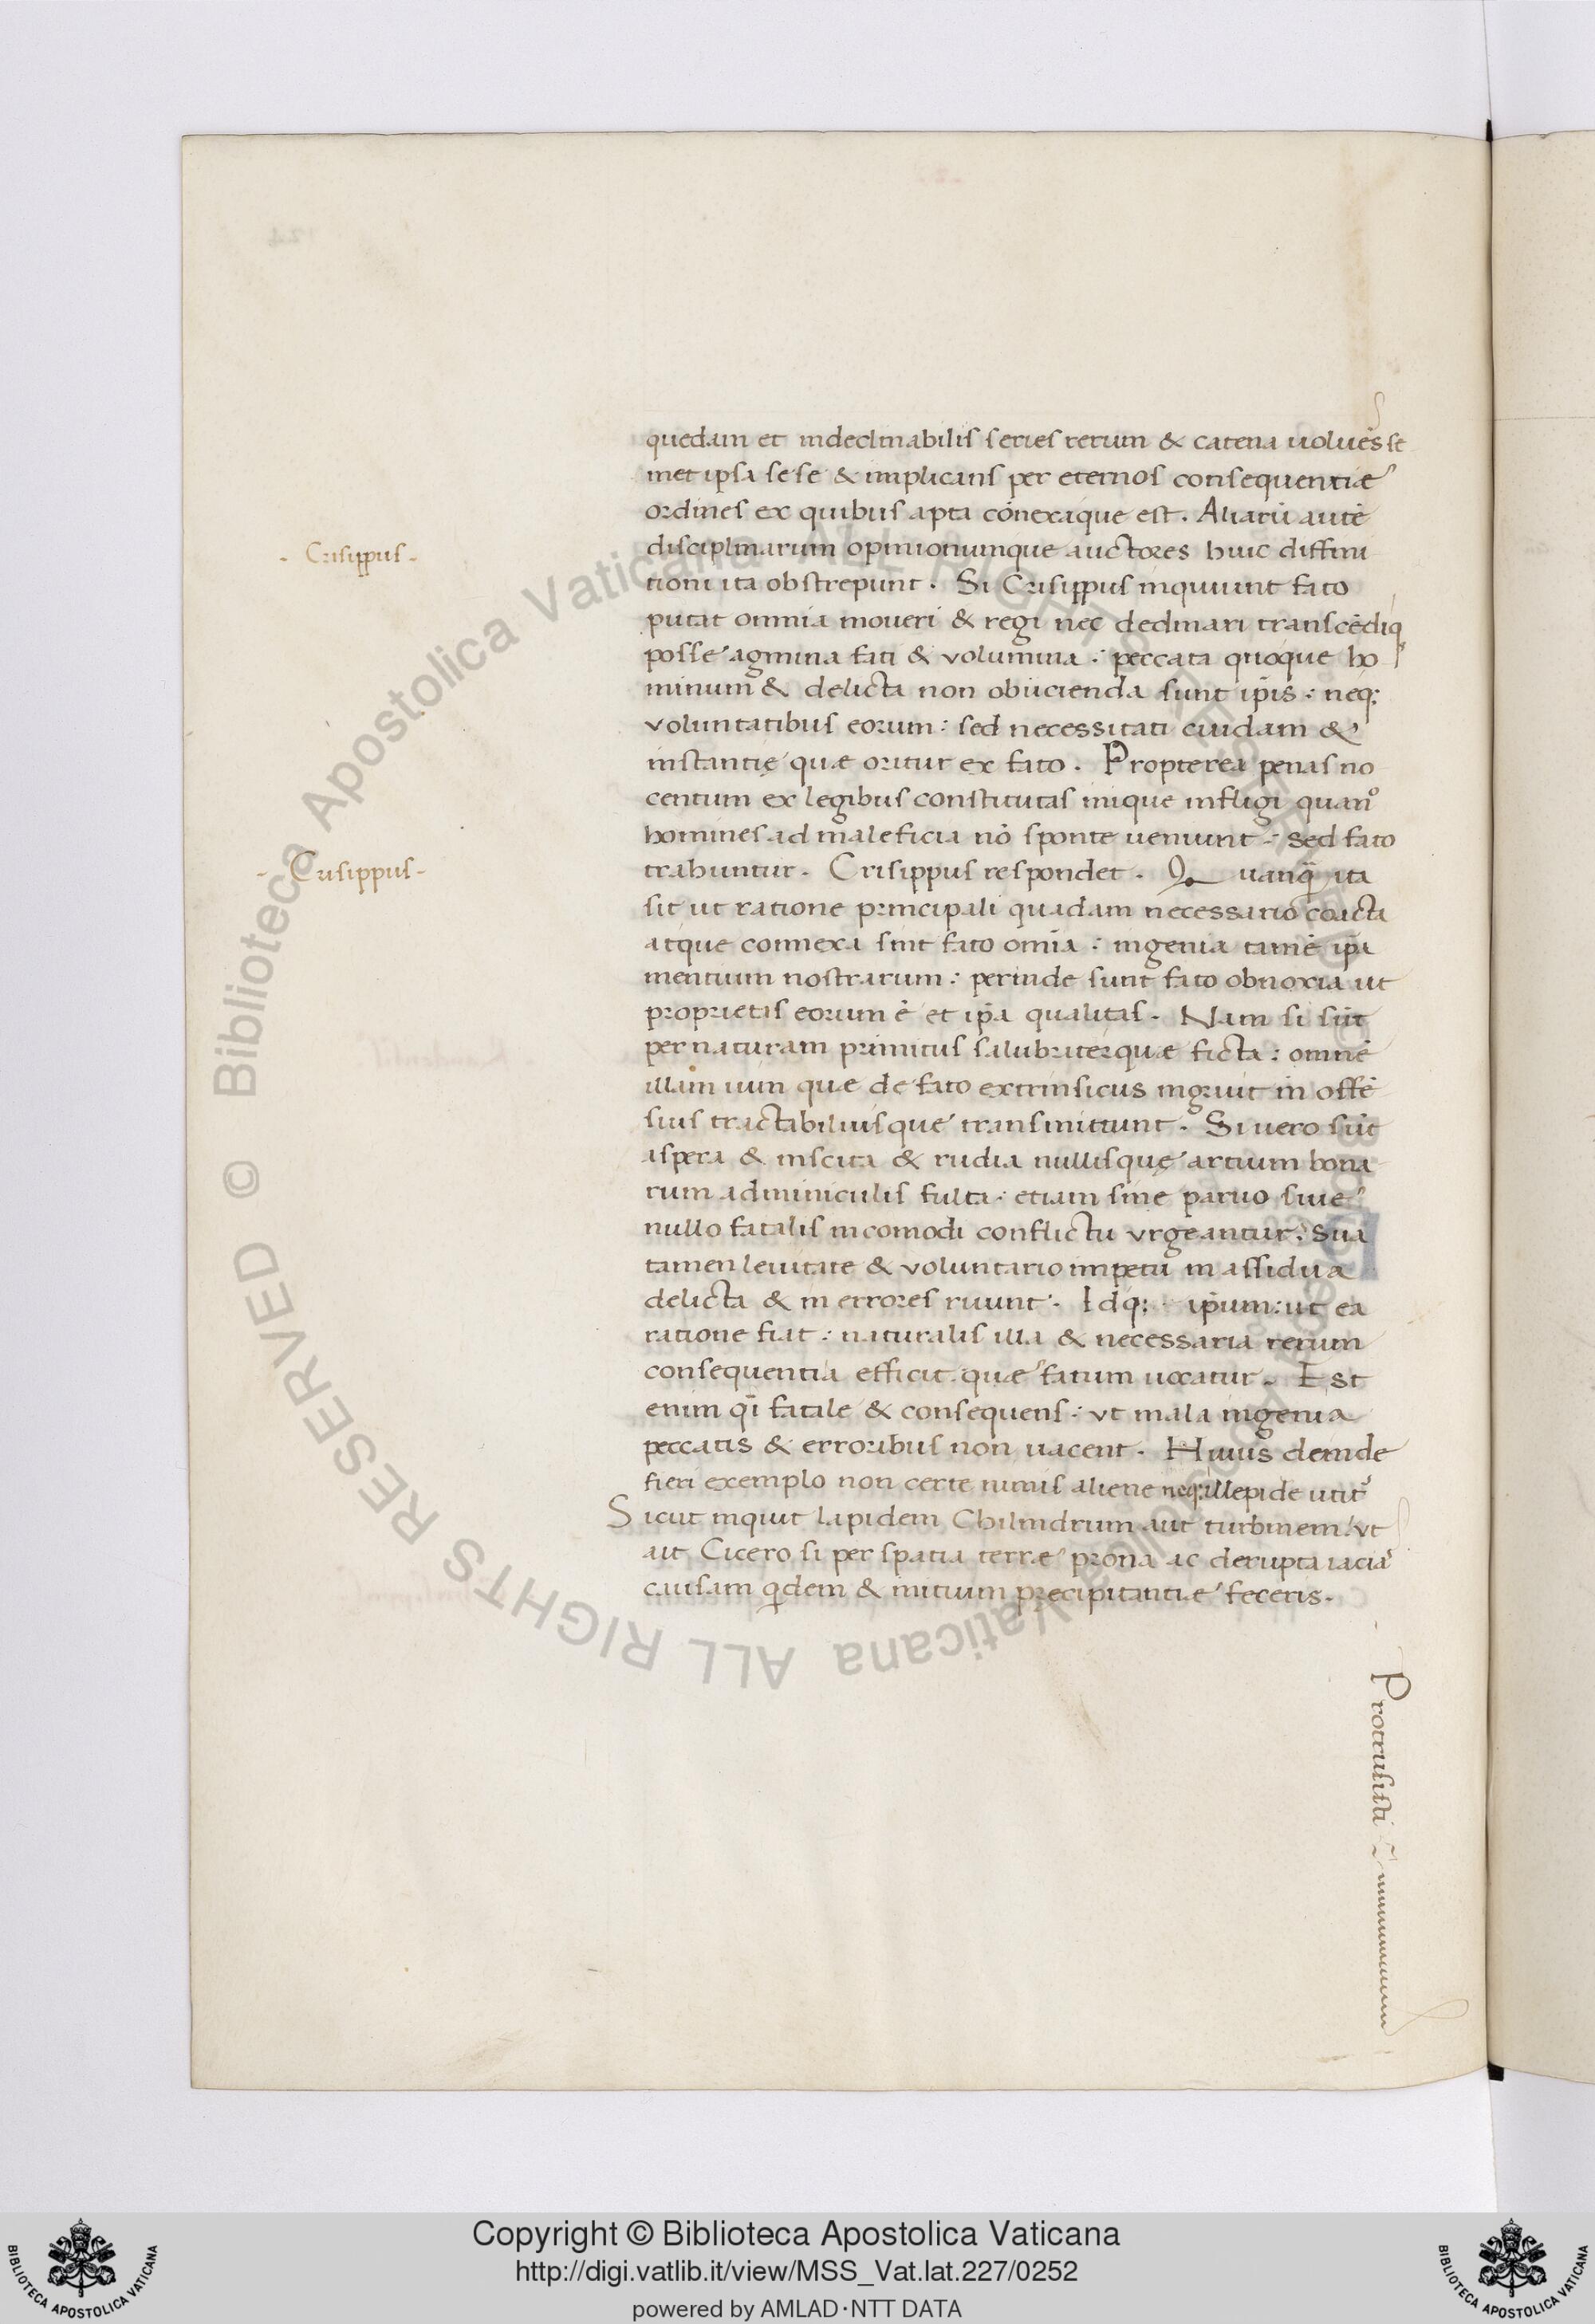 quedam et indeclinabilis series rerum & catena uoluēs se
met ipsa sese & implicans per eternos consequentiæ
ordines ex quibus apta cōnexaque est. Aliarū autē
- Crisippus -
disciplinarum opinionumque auctores huic diffini
tioni ita obstrepunt. Si Crisippus inquiunt fato
putat omnia moueri & regi nec declinari transcēdiq
posse agmina fati & volumina: peccata quoque ho
minum & delicta non obiicienda sunt ip̄is: neq;
voluntatibus eorum: sed necessitati cuidam &
instantię quæ oritur ex fato. Propterea penas no
centum ex legibus constitutas inique infligi quanº
homines ad maleficia nō sponte ueniunt: sed fato
- Crisippus -
trahuntur. Crisippus respondet. Quanq̄ ita
sit ut ratione principali quadam necessario coacta
atque connexa sint fato om̄ia: ingenia tamē ip̄a
mentium nostrarum: perinde sunt fato obnoxia ut
proprietas eorum ē et ip̄a qualitas. Nam si sūt
per naturam primitus salubriterquæ ficta: omnē
illam uim que de fato extrinsicus ingruit in offē
sius tractabiliusque transmittunt. Si uero sūt
aspera & inscita & rudia nullisquę artium bona
rum adminiculis fulta: etiam sine paruo siue
nullo fatalis incomodi conflictu vrgeantur: Sua
tamen leuitate & voluntario impetu in assidua
delicta & in errores ruunt. Idq; ip̄um: ut ea
ratione fiat: naturalis illa & necessaria rerum
consequentia efficit quæ fatum uocatur. Est
enim q̄i fatale & consequens: vt mala ingenia
peccatis & erroribus non uacent. Huius deinde
fieri exemplo non certe nimis aliene neq; illepide utit᷑
Sicut inquit lapidem Chilindrum aut turbinem vt
ait Cicero si per spatia terræ prona ac derupta iacia᷑
causam q̇dem & initium pręcipitantiæ feceris.
Protrusisti
Copyright © Biblioteca Apostolica Vaticana
http://digi.vatlib.it/view/MSS_Vat.lat.227/0252
powered by AMLAD·NTT DATA
BIBLIOTECA APOSTOLICA VATICANA
BIBLIOTECA APOSTOLICA VATICANA
© Biblioteca Apostolica Vaticana ALL RIGHTS RESERVED